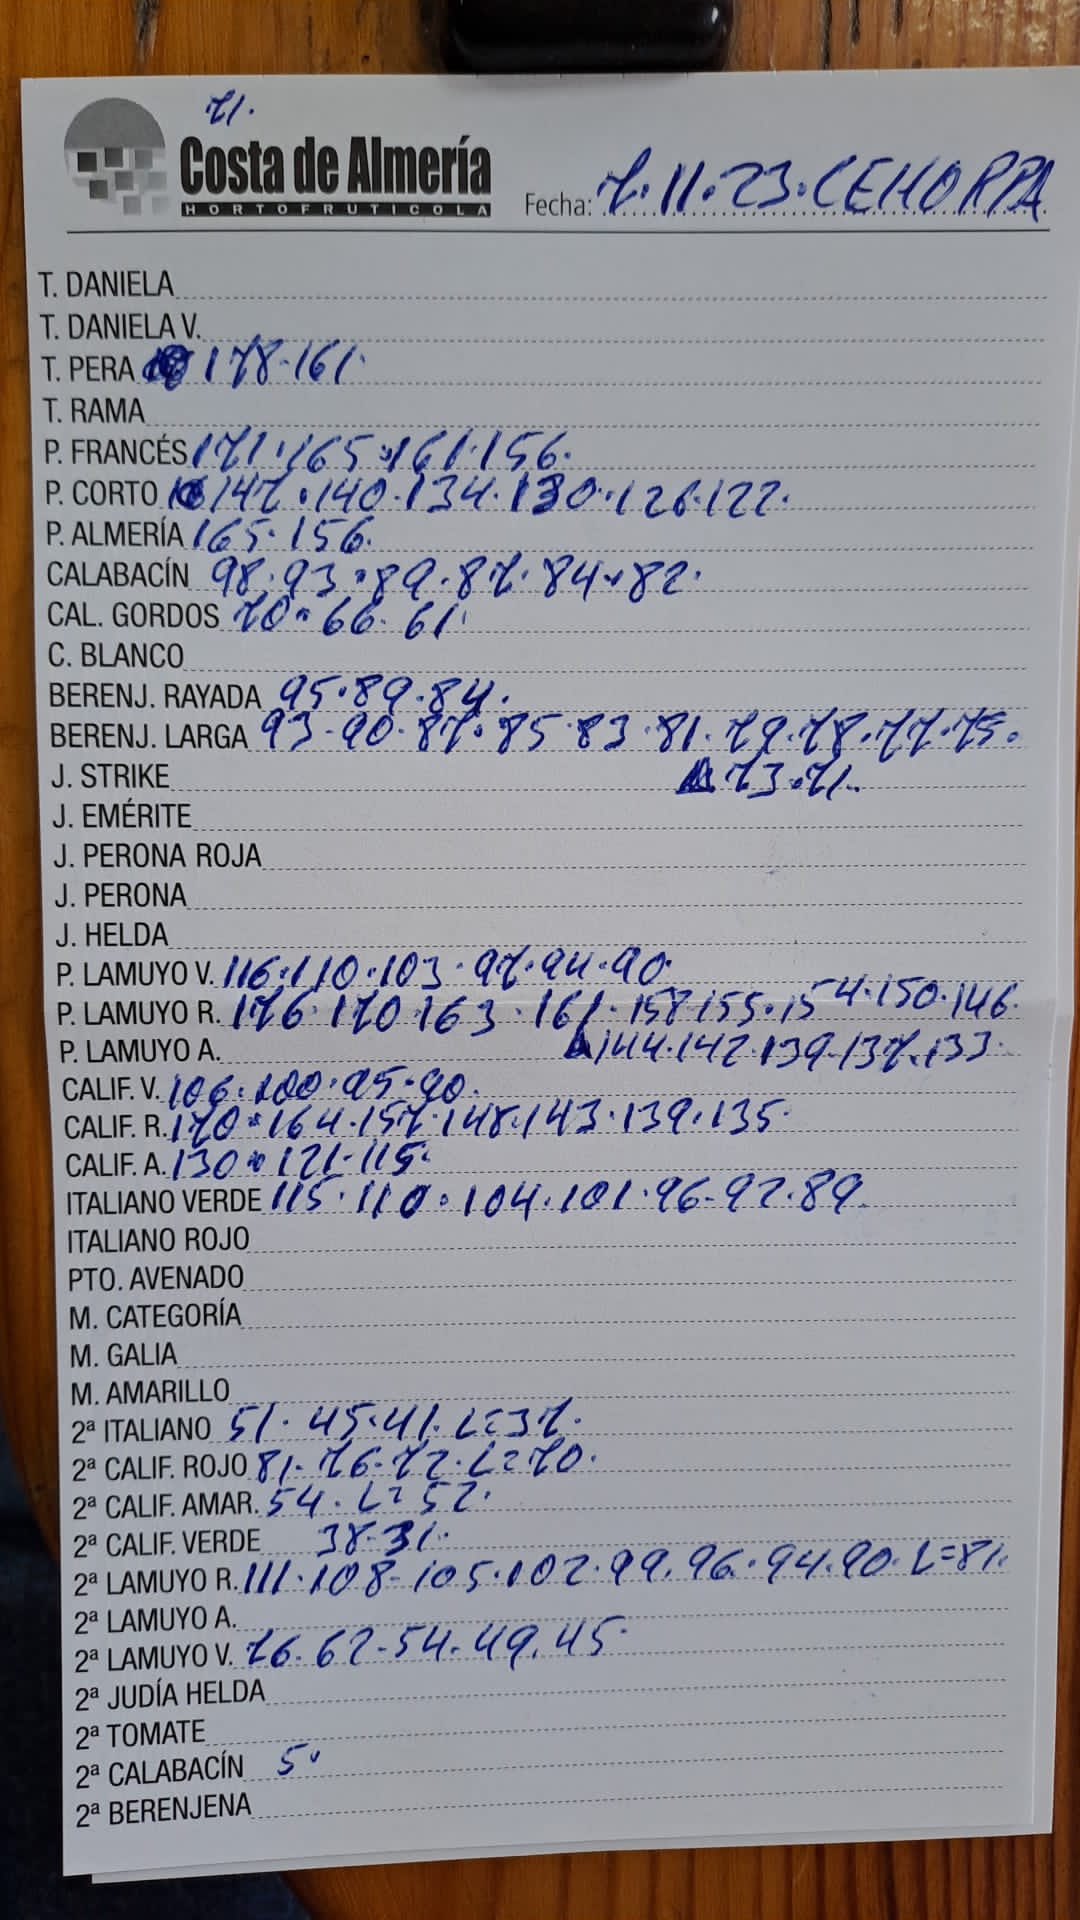 71.
Costa de Almería
HORTOFRUTICOLA
Fecha: 7.11.23.CEHORPA
T. DANIELA
T. DANIELA V.
T. PERA 178.161.
T. RAMA
P. FRANCÉS 171.165.161.156.
P. CORTO 147.140.134.130.126.122.
P. ALMERÍA 165.156.
CALABACÍN 98.93.89.87.84.82.
CAL. GORDOS 70.66.61.
C. BLANCO
BERENJ. RAYADA 95.89.84.
BERENJ. LARGA 93.90.87.85.83.81.79.78.77.75.
J. STRIKE 73.71.
J. EMÉRITE
J. PERONA ROJA
J. PERONA
J. HELDA
P. LAMUYO V. 116.110.103.97.94.90.
P. LAMUYO R. 176.170.163.161.158.155.154.150.146.
P. LAMUYO A. 144.142.139.137.133.
CALIF. V. 106.100.95.90.
CALIF. R. 170.164.157.148.143.139.135.
CALIF. A. 130.121.115.
ITALIANO VERDE 115.110.104.101.96.92.89.
ITALIANO ROJO
PTO. AVENADO
M. CATEGORÍA
M. GALIA
M. AMARILLO
2ª ITALIANO 51.45.41.L=37.
2ª CALIF. ROJO 81.76.72.L=70.
2ª CALIF. AMAR. 54.L=52.
2ª CALIF. VERDE 38.31.
2ª LAMUYO R. 111.108.105.102.99.96.94.90.L=81.
2ª LAMUYO A.
2ª LAMUYO V. 76.62.54.49.45.
2ª JUDÍA HELDA
2ª TOMATE
2ª CALABACÍN 5.
2ª BERENJENA